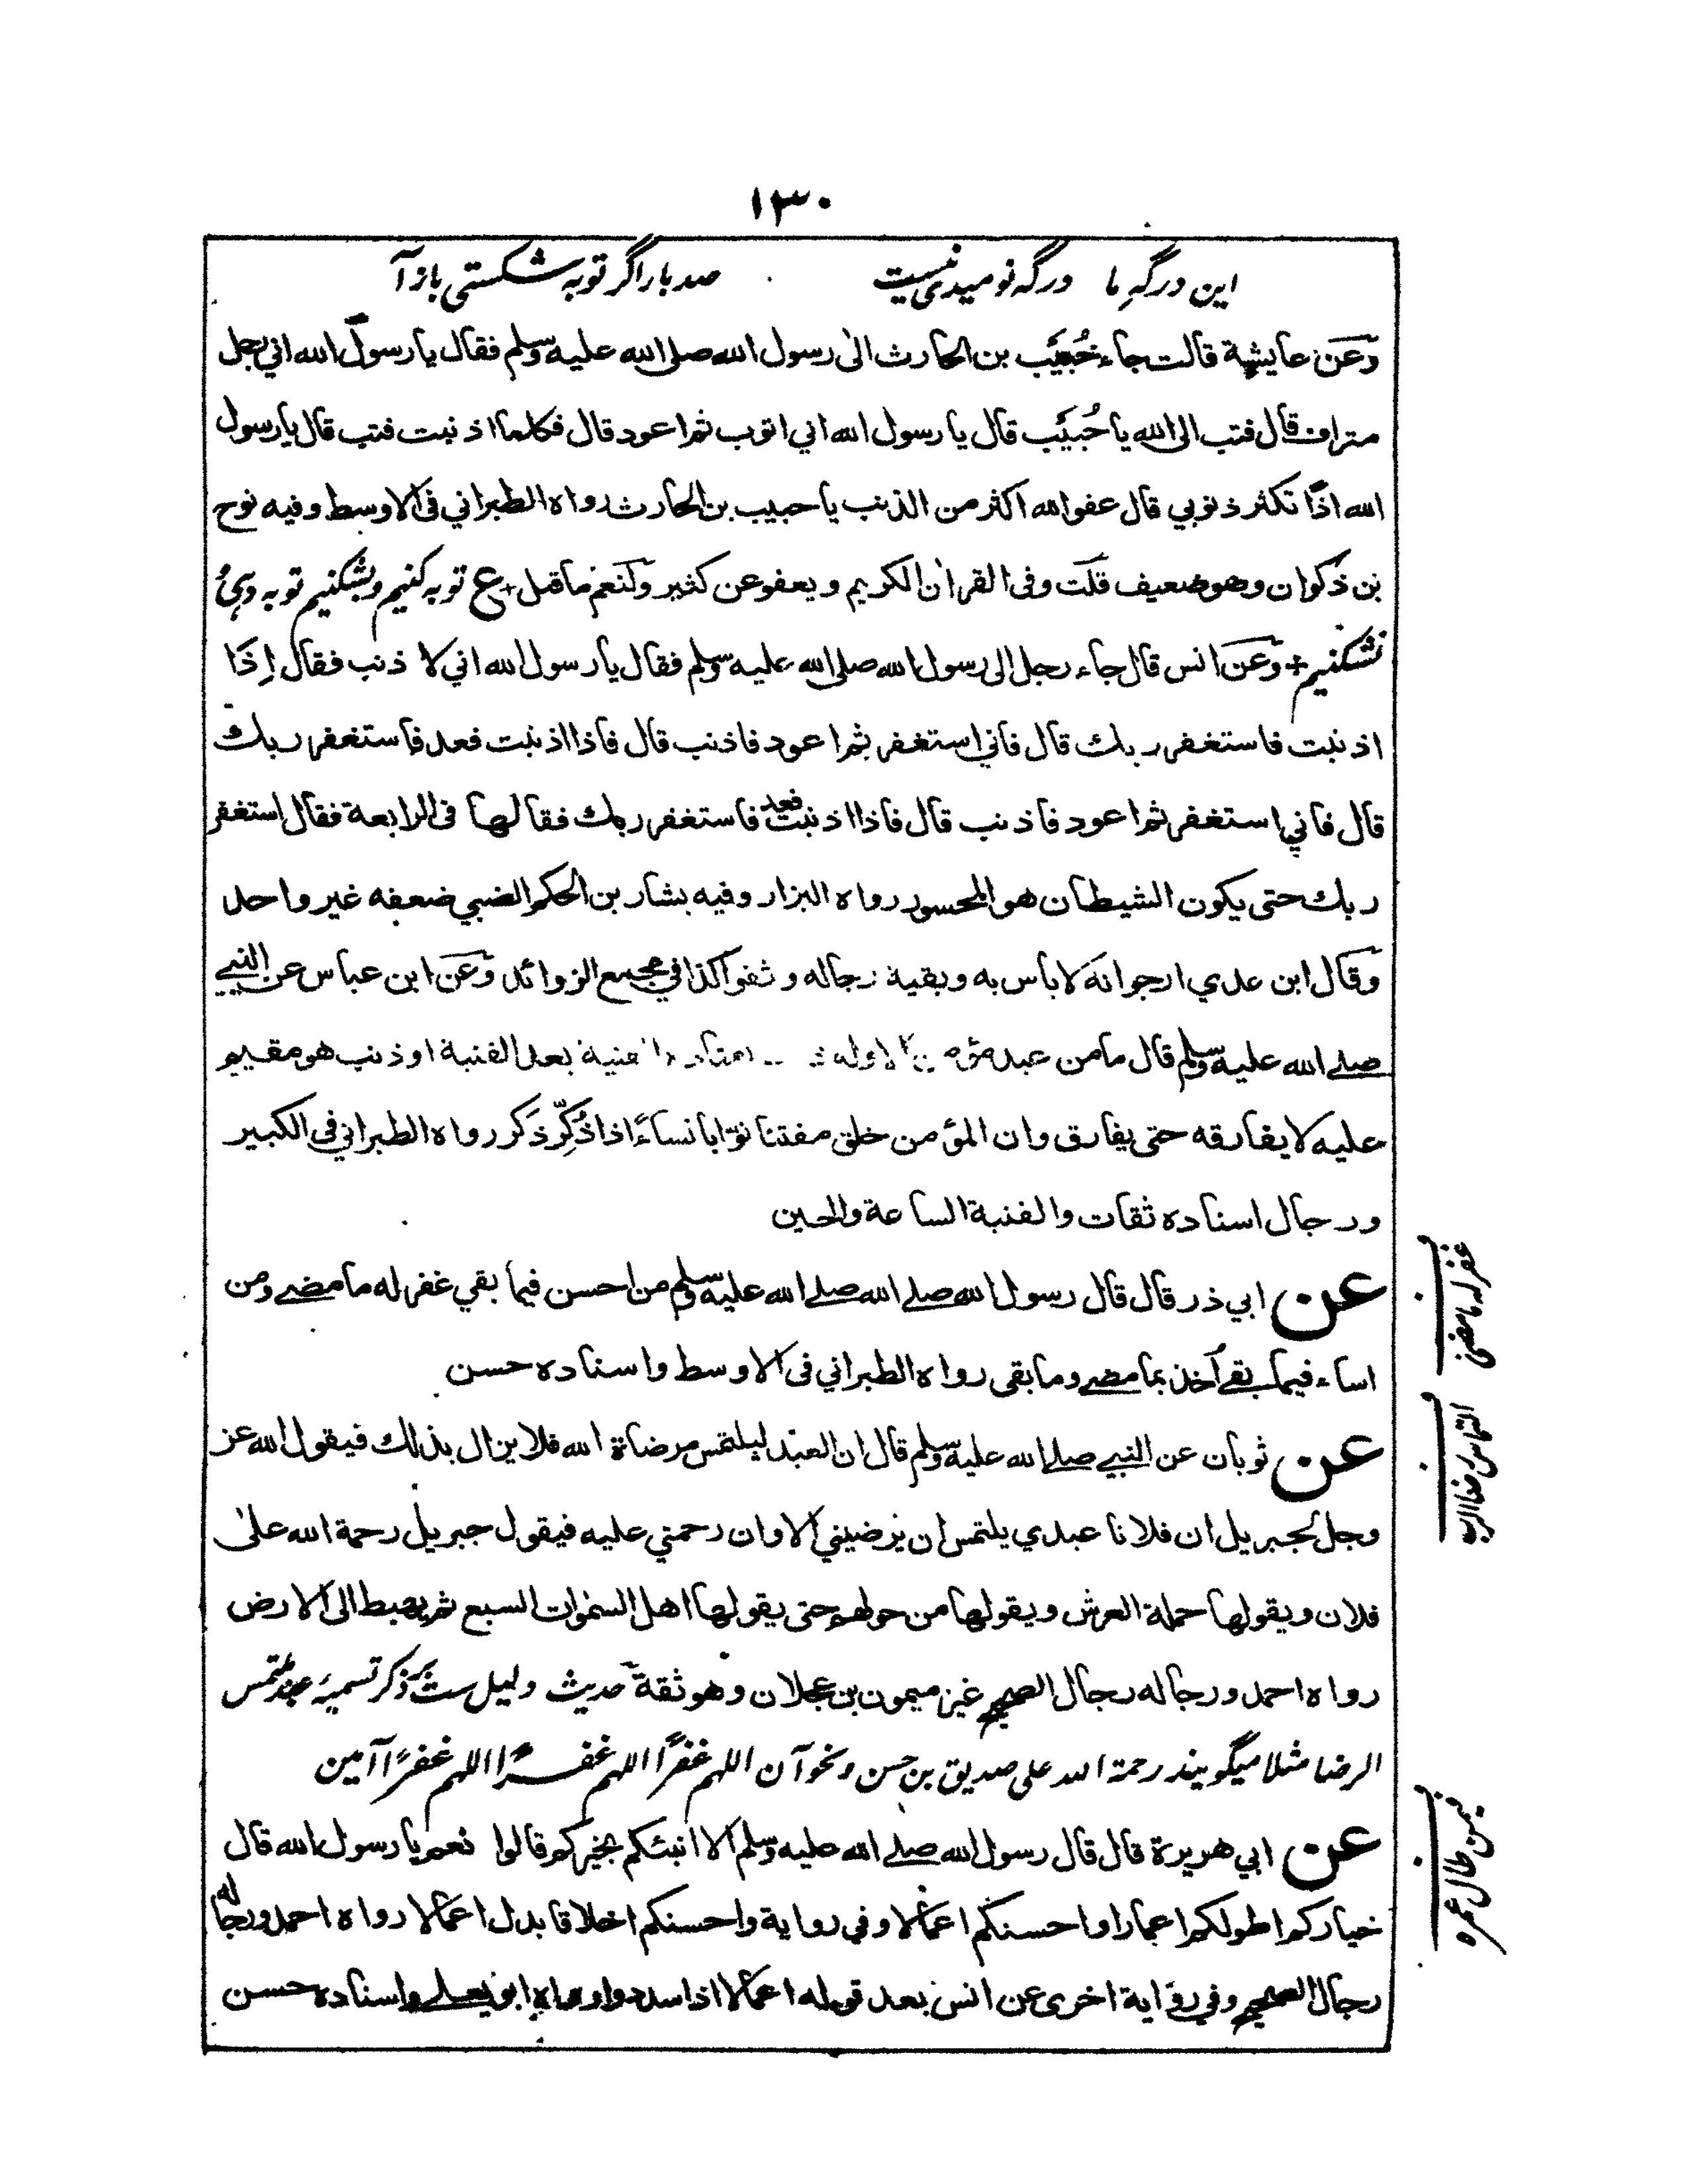 ١٣٠
این درگهِ ما درگه نومیدی نیست صد بار اگر توبه شکستی باز آ
وَعَن عايشة قالت جاء حُبيَّب بن الحارث الى رسول الله صلى الله عليه وسلم فقال يا رسول الله اني رجل
متراف قال فتب الى الله يا حُبيَّب قال يا رسول الله اني اتوب ثم اعود قال فكلما اذنبت فتب قال يا رسول
الله اذًا تكثر ذنوبي قال عفو الله اكثر من الذنب يا حبيب بن الحارث رواه الطبراني فى الاوسط وفيه نوح
بن ذكوان وهو ضعيف قلت وفى القران الكريم ويعفو عن كثير ولنعم ما قيل + ع توبه کنیم وبشکنیم توبه دہی
نشکنیم + وَعَن انس قال جاء رجل الى رسول الله صلى الله عليه وسلم فقال يا رسول الله اني لا ذنب فقال إذَا
اذنبت فاستغفر ربك قال فاني استغفر ثم اعود فاذنب قال فاذا اذنبت فعد فاستغفر ربك
قال فاني استغفر ثم اعود فاذنب قال فاذا اذنبت فعد فاستغفر ربك فقالها فى الرابعة فقال استغفر
ربك حتى يكون الشيطان هو المحسور رواه البزار وفيه بشار بن الحكم الضبي ضعفه غير واحد
وَقَال ابن عدي ارجو انه لا باس به وبقية رجاله وثقوا كذا في مجمع الزوائد وَعَن ابن عباس عن النبي
صلى الله عليه وسلم قال ما من عبد مؤمن الا وله الفنية بعد الفنية او ذنب هو مقيم
عليه لا يفارقه حتى يفارق وان المؤمن خلق مفتنا توّابا نساءً اذا ذُكِّر ذَكر رواه الطبراني فى الكبير
ورجال اسناده ثقات والفنية الساعة والحين
عن ابي ذر قال قال رسول الله صلى الله صلى الله عليه وسلم من احسن فيما بقي غفر له ما مضى ومن
اساء فيما بقى أخذ بما مضى وما بقى رواه الطبراني فى الاوسط واسناده حسن
عن ثوبان عن النبي صلى الله عليه وسلم قال ان العبد ليلتمس مرضاة الله فلا يزال بذلك فيقول الله عز
وجل لجبريل ان فلانا عبدي يلتمس ان يرضيني الا وان رحمتي عليه فيقول جبريل رحمة الله على
فلان ويقولها حملة العرش ويقولها من حولهم حتى يقولها اهل السموات السبع ثم يهبط الى الارض
رواه احمد ورجاله رجال الصحيح غير ميمون بن عجلان وهو ثقة حدیث دلیل ست بر ذکر تسمیۂ عبد ملتمس
الرضا مثلا میگویند رحمة الله علی صدیق بن حسن ونحو آن اللهم غفرًا اللهم غفرًا اللهم غفرًا آمین
عن ابي هريرة قال قال رسول الله صلى الله عليه وسلم الا انبئكم بخيركم قالوا نعم يا رسول الله قال
خياركم اطولكم اعمارا واحسنكم اعمالا وفي رواية واحسنكم اخلاقا بدل اعمالا رواه احمد ورجاله
رجال الصحيح وفي رواية اخرى عن انس بعد قوله اعمالا اذا سددوا رواه ابو يعلى واسناده حسن
غفر له ما مضى
التماس رضا الرب
فیمن طال عمره